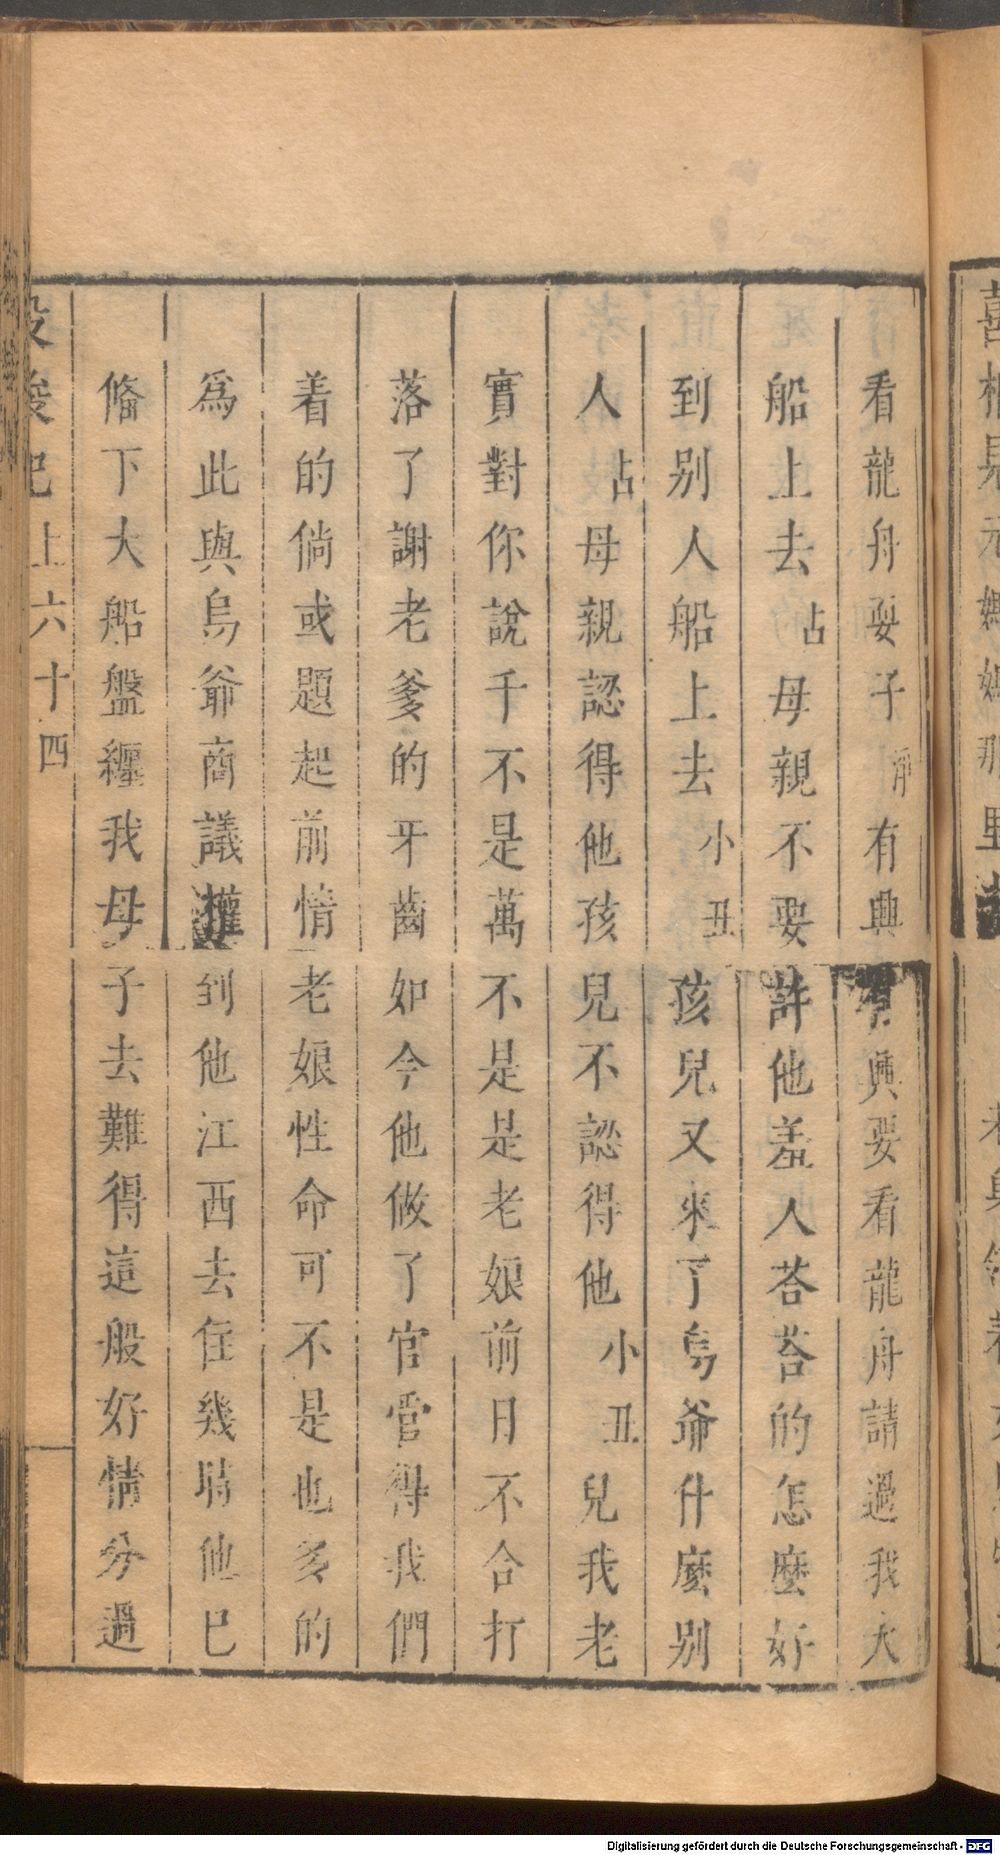 看龍舟耍子淨有興有興要看龍舟請過我大
船上去占母親不要許他羞人荅荅的怎麼好
到别人船上去小丑孩兒又來了烏爺什麼别
人占母親認得他孩兒不認得他小丑兒我老
實對你說千不是萬不是是老娘前日不合打
落了謝老爹的牙齒如今他做了官管得我們
着的倘或題起前情老娘性命可不是他多的
爲此與烏爺商議權到他江西去住幾時他巳
偹下大船盤纏我母子去難得這般好情分過
投梭記上六十四
Digitalisierung gefördert durch die Deutsche Forschungsgemeinschaft - DFG